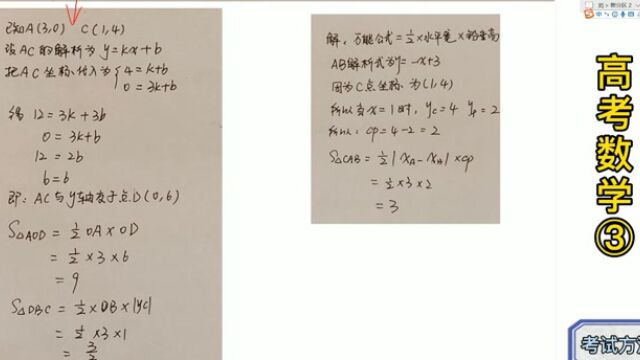 已知A(3,0) C(1,4)
设AC的解析为 y=kx+b
把AC坐标代入为 { 4=k+b
0=3k+b
得 12=3k+3b
0=3k+b
12=2b
b=6
即: AC与y轴交于点D(0,6)
S△AOD = ½OA×OD
= ½×3×6
= 9
S△DBC = ½×DB×|yc|
= ½×3×1
= 3/2
解: 万能公式=½×水平宽×铅垂高
AB解析式为y=-x+3
因为C点坐标为(1,4)
所以当x=1时, yc=4 =2
所以: CP=4-2=2
S△CAB = ½|XA-XB|×CP
= ½×3×2
= 3
高考数学③
考试方